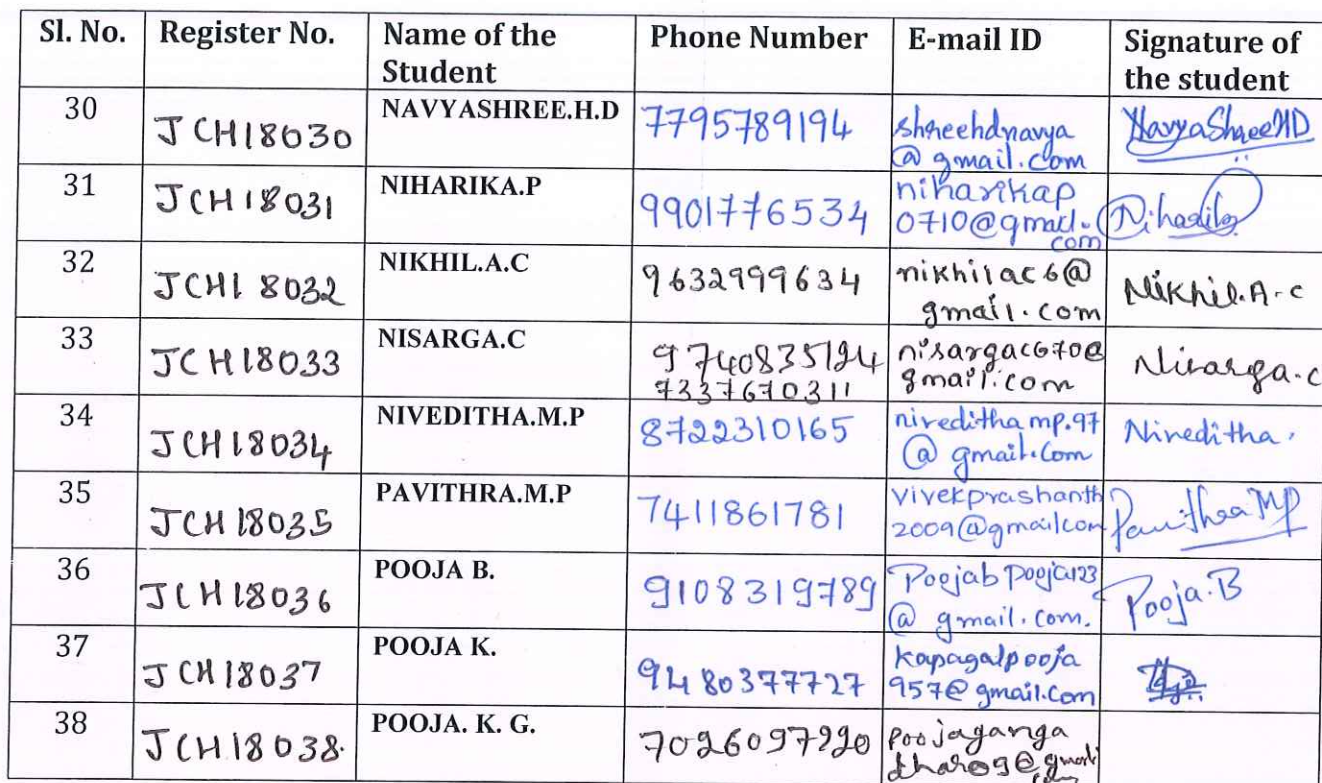 Sl. No. Register No. Name of the Student Phone Number E-mail ID Signature of the student
30 JCH18030 NAVYASHREE.H.D 7795789194 shreehdnavya@gmail.com NavyaShreeHD
31 JCH18031 NIHARIKA.P 9901776534 niharikap0710@gmail.com Niharika
32 JCH18032 NIKHIL.A.C 9632999634 nikhilac6@gmail.com Nikhil.A.C
33 JCH18033 NISARGA.C 9740835124 7337670311 nisargac670@gmail.com Nisarga.C
34 JCH18034 NIVEDITHA.M.P 8722310165 nivedithamp.97@gmail.com Niveditha.
35 JCH18035 PAVITHRA.M.P 7411861781 vivekprashanth2009@gmailcom Pavithra MP
36 JCH18036 POOJA B. 9108319789 Poojabpooja123@gmail.com. Pooja.B
37 JCH18037 POOJA K. 9480377727 kapagalpooja957@gmail.com
38 JCH18038. POOJA. K. G. 7026097220